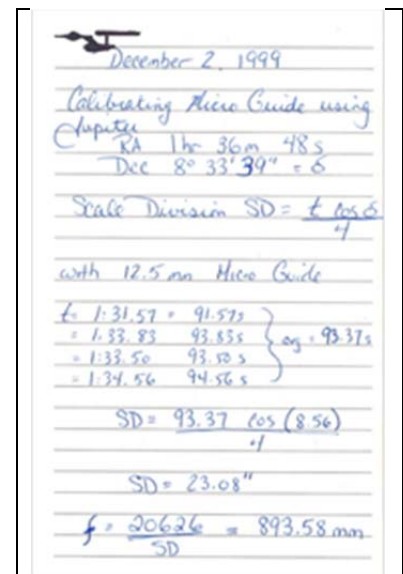 December 2, 1999
Calibrating Micro Guide using
Jupiter
RA 1hr 36m 48s
Dec 8° 33' 39" = δ
Scale Division SD = t cos δ
4
with 12.5 mm Micro Guide
t = 1:31.57 = 91.57s
= 1:33.83 93.83s } avg = 93.37s
= 1:33.50 93.50 s
= 1:34.56 94.56 s
SD = 93.37 cos (8.56)
4
SD = 23.08"
f = 20626 = 893.58 mm
SD